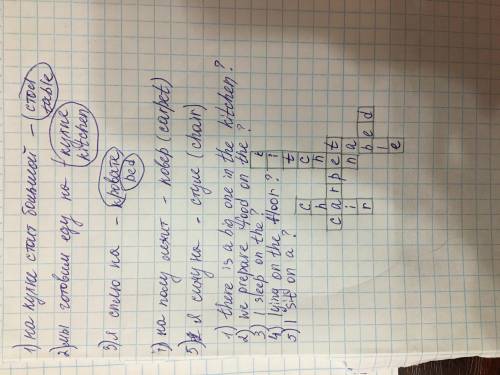 1) на кухне стоит большой - (стол
table)
2) мы готовим еду на - (кухне
kitchen)
3) я сплю на - кровате
bed
4) на полу лежит - ковер (carpet)
5) я сижу на - стуле (chair)
1) there is a big one in the kitchen?
2) we prepare food on the?
3) I sleep on the?
4) lying on the floor?
5) I sit on a?
k
i
t
c c
h h
carpet
i n a
r bed
l
e